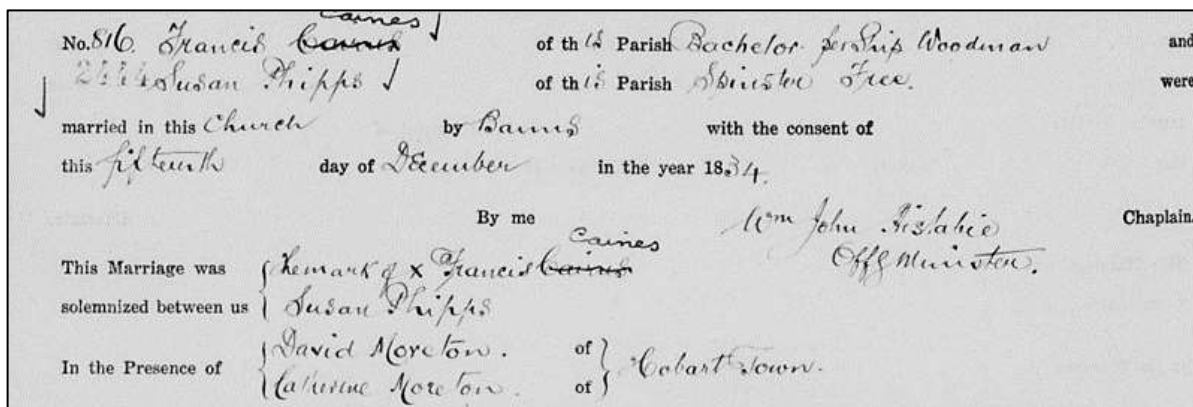 Caines
No. 816. Francis Cairns of this Parish Bachelor per Ship Woodman and
2444 Susan Phipps of this Parish Spinster Free. were
married in this Church by Banns with the consent of
this fifteenth day of December in the year 1834.
By me Wm John Aislabie Chaplain.
Offg Minister.
Caines
This Marriage was The mark of x Francis Cairns
solemnized between us Susan Phipps
In the Presence of David Moreton. of
Catherine Moreton. of Hobart Town.